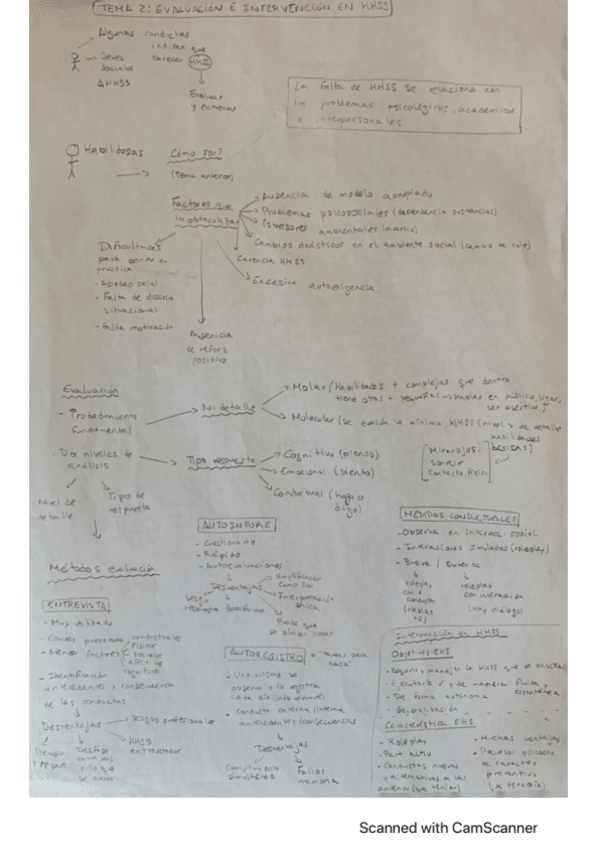 TEMA 2: EVALUACIÓN E INTERVENCIÓN EN HHSS
Algunas conductas
indican que
carecen HHSS
Seres
sociales
Δ HHSS
Evaluar
y entrenar
La falta de HHSS se relaciona con
los problemas psicológicos, académicos
e interpersonales
Habilidosas
Cómo son?
(tema anterior)
Factores que
lo obstaculizan
Ausencia de modelo apropiado
Problemas psicosociales (dependencia sustancias)
Estresores ambientales
Cambios drásticos en el ambiente social
Carencia HHSS
Excesiva autoexigencia
Dificultades
para poner en
práctica
- Ansiedad social
- Falta de
situacional
- Falta motivación
Ausencia
de reforz
positivo
Evaluación
- Procedimiento
fundamental
- Dos niveles de
análisis
Nivel de
detalle
Tipo de
respuesta
N. detalle
Molar (Habilidades + complejas que dentro
tiene otras + pequeñas → Hablar en público, ligar,
ser asertivo)
Molecular (se evalúa la mínima HHSS (nivel > de detalle
habilidades
básicas)
Mirar ojos
sonreír
Contacto
Tipo respuesta
Cognitivo (pienso)
Emocional (siento)
Conductual (hago o
digo)
Métodos evaluación
ENTREVISTA
- Muy utilizado
- Conocer
- Atender factores
conductuales
físicos
sociales
afectivos
cognitivos
- Identificación
antecedentes y consecuencia
de las conductas
Desventajas
sesgos profesionales
HHSS
entrevistador
Tiempo
Desfase
AUTOINFORME
- Cuestionario
- Rápido
- Autoevaluaciones
Desventajas
simplificación
AUTOREGISTRO
"tarea para
casa"
- Uno mismo se
observa y lo registra
- Conducta externa/interna
antecedentes/consecuencias
Desventajas
Cumplimiento
Fallos
memoria
MEDIDAS CONDUCTUALES
- Observa en interacc. social
- Interacciones simuladas (roleplay)
- Breve / Extensa
roleplay
roleplay
con interacción
(Hay diálogo)
Intervención en HHSS
Objetivos EHS
- Adquirir y manejar la HHSS que se enseñan
- Ejecutarla y de manera fluida, espontánea
- De forma autónoma
- Generalización
Característica EHS
- Roleplay
- Part activ
- Conductas nuevas
y alternativas a las
anterior (que tenían)
- Muchas ventajas
- Recurso
de carácter
preventivo
(x terapia)
Scanned with CamScanner